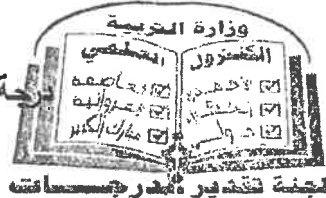 وزارة التربية
الكنترول
التعليمي
الأحمدي
حولي
العاصمة
الفروانية
مبارك الكبير
لجنة تقدير الدرجات